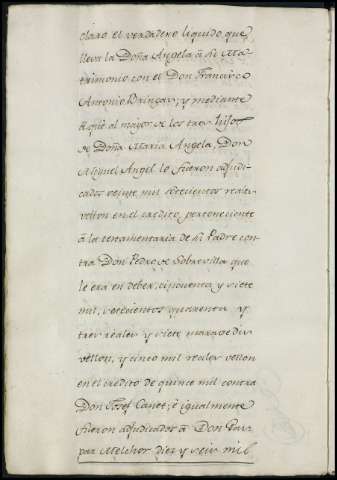 claro el verdadero liquido que
lleva la Doña Angela á su Ma-
trimonio con el Don Francisco
Antonio Bringas; y mediante
á que al mayor de los tres hijos
de Doña Maria Angela, Don
Miguel Angel le fueron adjudi-
cados veinte mil setecientos reales
vellon en el credito perteneciente
á la testamentaria de su Padre con-
tra Don Pedro de Sobrevilla que
le era en deber, cinquenta y siete
mil, setecientos quarenta y
tres reales y siete maravedis
vellon, y cinco mil reales vellon
en el credito de quince mil contra
Don Josef Canet; é igualmente
fueron adjudicados á Don Gas-
par Melchor diez y seis mil